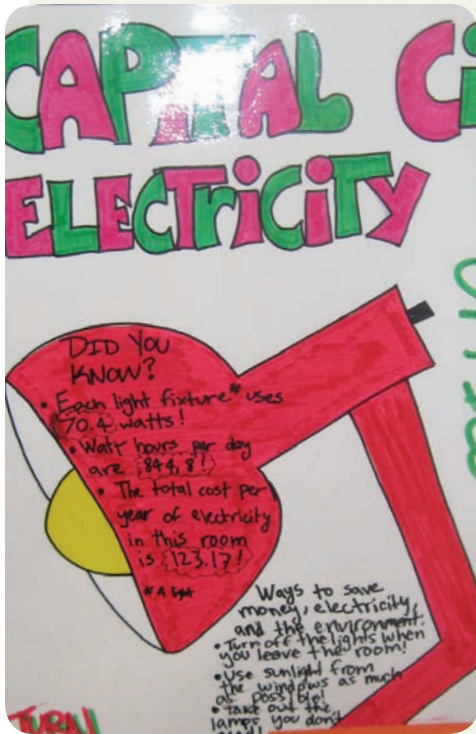 CAPITAL Ci
ELECTriCiTY
DID YOU
KNOW?
• Each light fixture* uses
70.4 watts!
• Watt hours per day
are 844,8!
• The total cost per
year of electricity
in this room
is 123.17!
* A light
Ways to save
money, electricity,
and the environment.
• Turn off the lights when
you leave the room!
• Use sunlight from
the windows as much
as possible!
• Take out the
lamps you don't
TURN